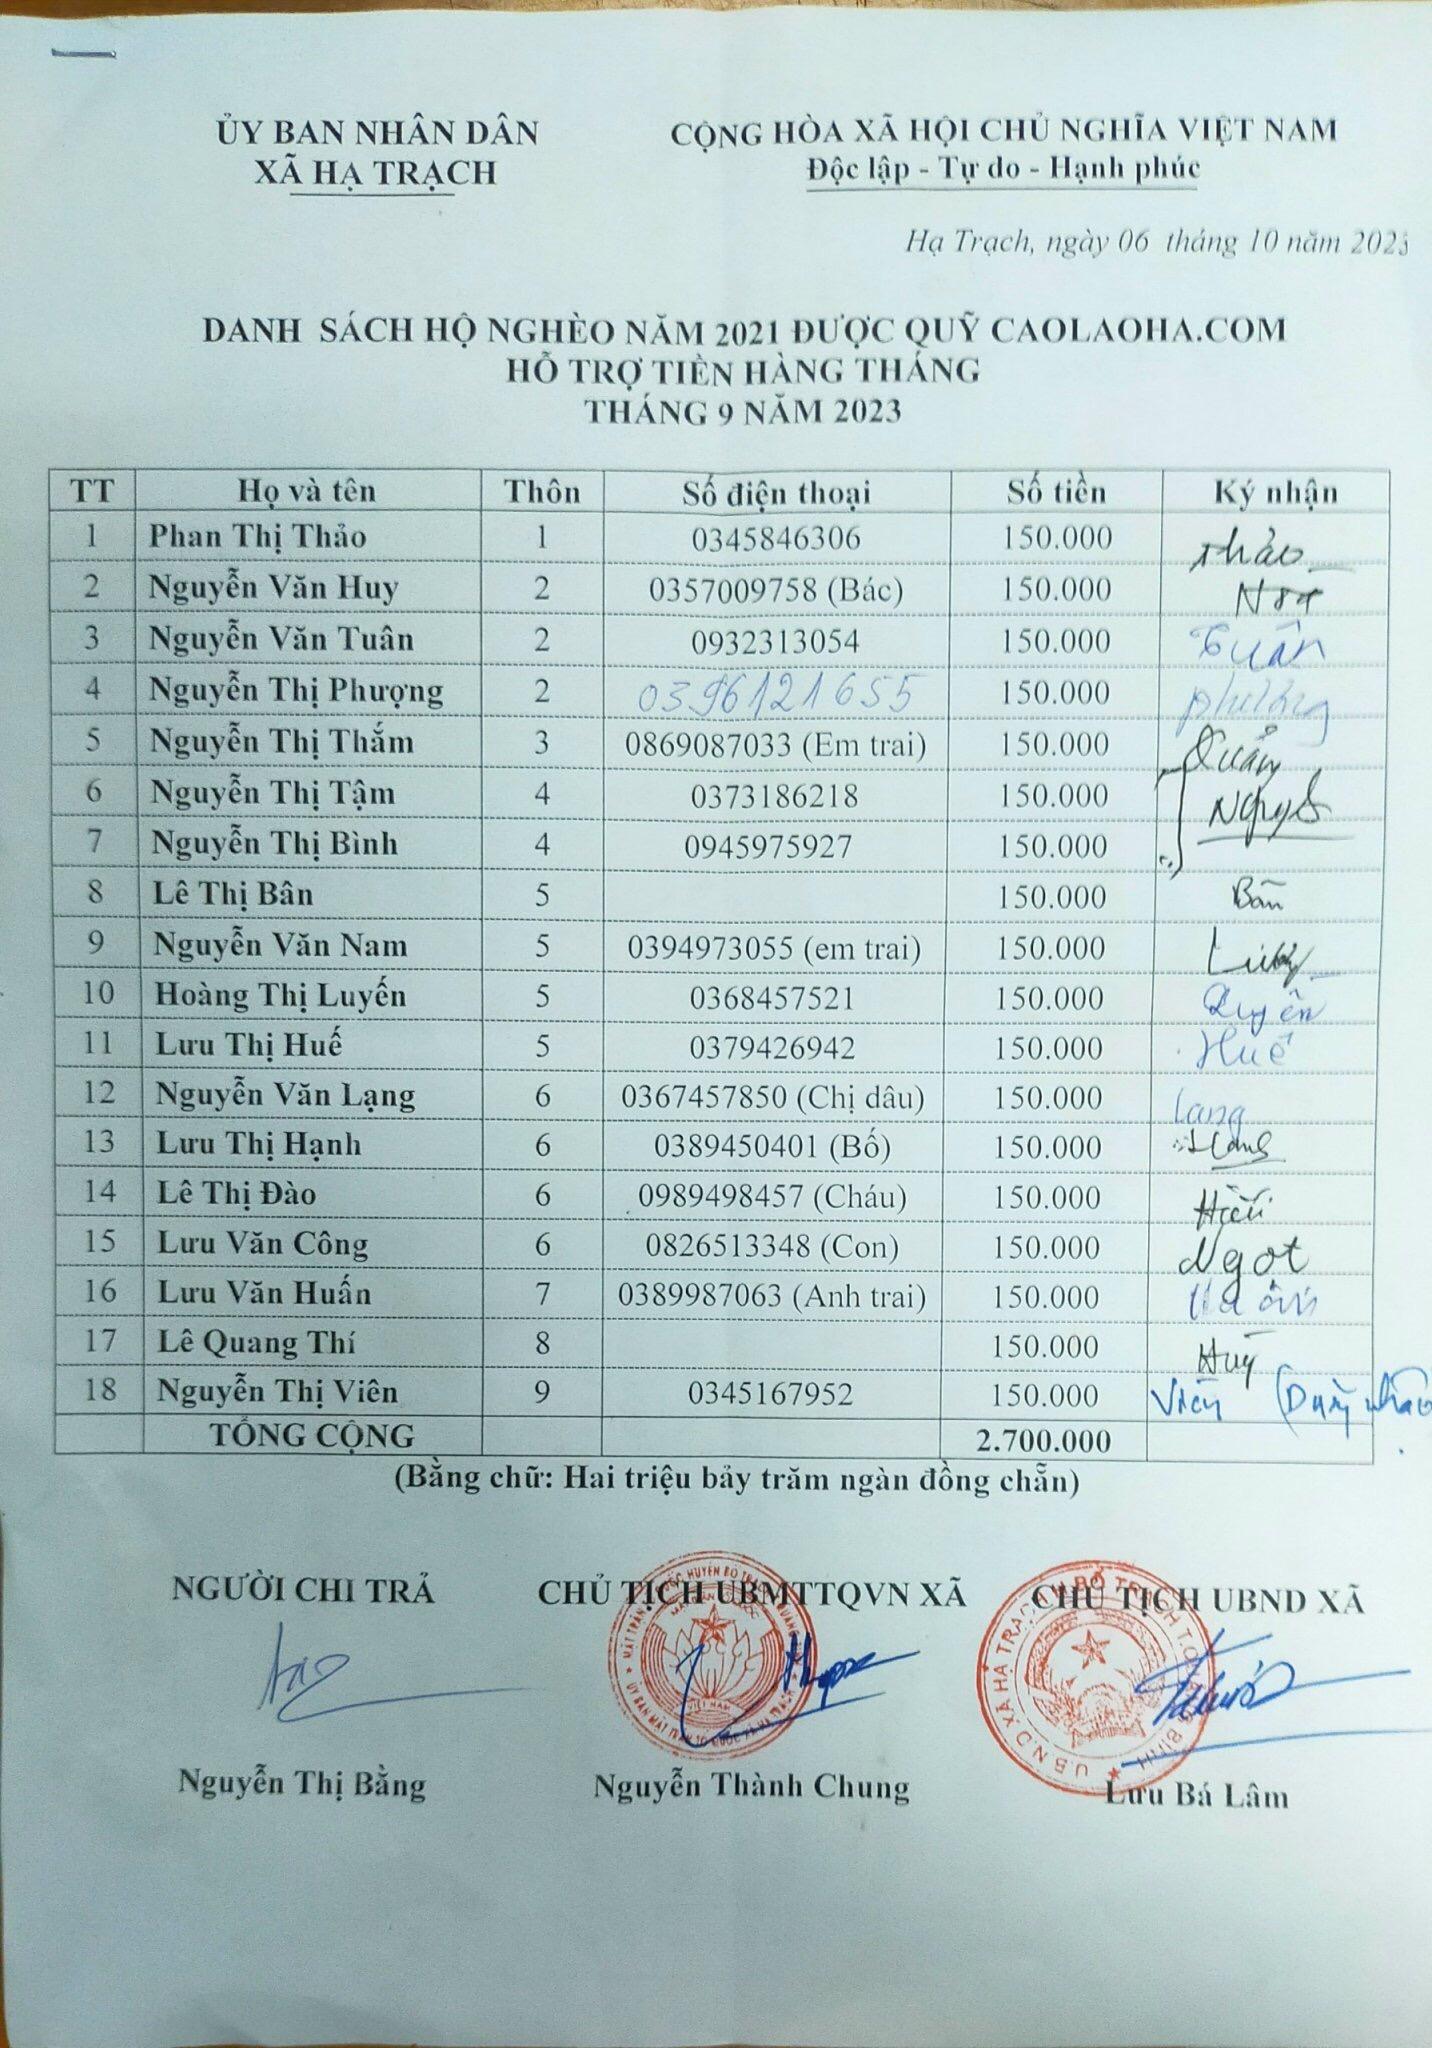 ỦY BAN NHÂN DÂN
XÃ HẠ TRẠCH
CỘNG HÒA XÃ HỘI CHỦ NGHĨA VIỆT NAM
Độc lập - Tự do - Hạnh phúc
Hạ Trạch, ngày 06 tháng 10 năm 2023
DANH SÁCH HỘ NGHÈO NĂM 2021 ĐƯỢC QUỸ CAOLAOHA.COM
HỖ TRỢ TIỀN HÀNG THÁNG
THÁNG 9 NĂM 2023
TT Họ và tên Thôn Số điện thoại Số tiền Ký nhận
1 Phan Thị Thảo 1 0345846306 150.000 Thảo
2 Nguyễn Văn Huy 2 0357009758 (Bác) 150.000
3 Nguyễn Văn Tuân 2 0932313054 150.000 Tuân
4 Nguyễn Thị Phượng 2 0396121655 150.000 phượng
5 Nguyễn Thị Thắm 3 0869087033 (Em trai) 150.000
6 Nguyễn Thị Tậm 4 0373186218 150.000
7 Nguyễn Thị Bình 4 0945975927 150.000
8 Lê Thị Bân 5 150.000 Bân
9 Nguyễn Văn Nam 5 0394973055 (em trai) 150.000
10 Hoàng Thị Luyến 5 0368457521 150.000
11 Lưu Thị Huế 5 0379426942 150.000 Huế
12 Nguyễn Văn Lạng 6 0367457850 (Chị dâu) 150.000 Lang
13 Lưu Thị Hạnh 6 0389450401 (Bố) 150.000
14 Lê Thị Đào 6 0989498457 (Cháu) 150.000
15 Lưu Văn Công 6 0826513348 (Con) 150.000 Ngọt
16 Lưu Văn Huấn 7 0389987063 (Anh trai) 150.000
17 Lê Quang Thí 8 150.000 Huy
18 Nguyễn Thị Viên 9 0345167952 150.000 Viên
TỔNG CỘNG 2.700.000
(Bằng chữ: Hai triệu bảy trăm ngàn đồng chẵn)
NGƯỜI CHI TRẢ
CHỦ TỊCH UBMTTQVN XÃ
CHỦ TỊCH UBND XÃ
Nguyễn Thị Bằng
Nguyễn Thành Chung
Lưu Bá Lâm